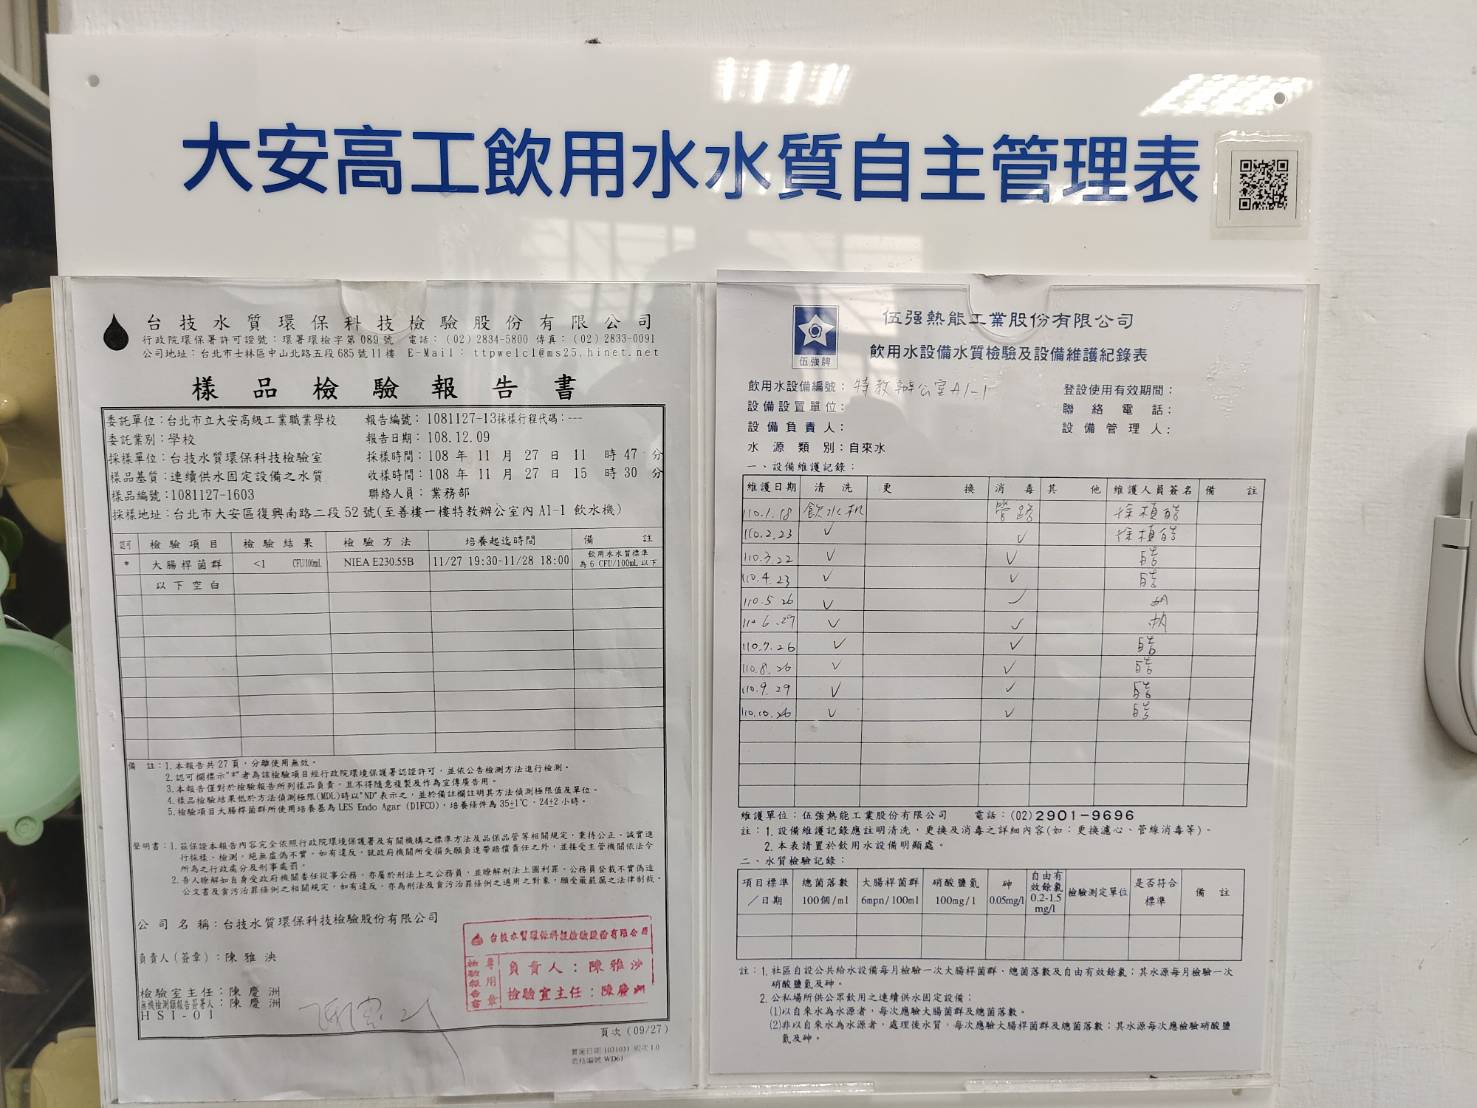 大安高工飲用水水質自主管理表
台技水質環保科技檢驗股份有限公司
行政院環保署許可證號：環署環檢字第089號 電話：(02)2834-5800 傳真：(02)2833-0091
公司地址：台北市士林區中山北路五段685號11樓 E-Mail：ttpwelcl@ms25.hinet.net
樣品檢驗報告書
委託單位：台北市立大安高級工業職業學校 報告編號：1081127-13採樣行程代碼：---
委託業別：學校 報告日期：108.12.09
採樣單位：台技水質環保科技檢驗室 採樣時間：108 年 11 月 27 日 11 時 47 分
樣品基質：連續供水固定設備之水質 收樣時間：108 年 11 月 27 日 15 時 30 分
樣品編號：1081127-1603 聯絡人員：業務部
採樣地址：台北市大安區復興南路二段52號(至善樓一樓特教辦公室內A1-1 飲水機)
認可 檢驗項目 檢驗結果 檢驗方法 培養起迄時間 備註
* 大腸桿菌群 <1 CFU/100mL NIEA E230.55B 11/27 19:30-11/28 18:00 飲用水水質標準為6 CFU/100mL以下
以下空白
備 註：1.本報告共27頁，分離使用無效。
2.認可欄標示"*"者為該檢驗項目經行政院環境保護署認證許可，並依公告檢測方法進行檢測。
3.本報告僅對於檢驗報告所列樣品負責，且不得隨意複製及作為宣傳廣告用。
4.樣品檢驗結果低於方法偵測極限(MDL)時以"ND"表示之，並於備註欄註明其方法偵測極限值及單位。
5.檢驗項目大腸桿菌群所使用培養基為LES Endo Agar (DIFCO)，培養條件為35±1℃、24±2小時。
聲明書：1.茲保證本報告內容完全依照行政院環境保護署及有關機構之標準方法及品保品管等相關規定，秉持公正、誠實進
行採樣、檢測。絕無虛偽不實。如有違反，就政府機關所受損失願負連帶賠償責任之外，並接受主管機關依法令
所為之行政處分及刑事處罰。
2.吾人瞭解如自身受政府機關委任從事公務，亦屬於刑法上之公務員，並瞭解刑法上圖利罪、公務員登載不實偽造
公文書及貪污治罪條例之相關規定，如有違反，亦為刑法及貪污治罪條例之適用之對象，願受最嚴厲之法律制裁。
公司名稱：台技水質環保科技檢驗股份有限公司
負責人(簽章)：陳雅泱
檢驗室主任：陳慶洲
無機檢測類報告簽署人：陳慶洲
HSI-01
台技水質環保科技檢驗股份有限公司
檢驗報告書
專用章
負責人：陳雅泱
檢驗室主任：陳慶洲
頁次 (09/27)
伍強牌
伍强熱能工業股份有限公司
飲用水設備水質檢驗及設備維護紀錄表
飲用水設備編號：特教辦公室A1-1 登設使用有效期間：
設備設置單位： 聯絡電話：
設備負責人： 設備管理人：
水源類別：自來水
一、設備維護記錄：
維護日期 清洗 更換 消毒 其他 維護人員簽名 備註
110.1.18 飲水机 管路
110.2.23 ✓ ✓
110.3.22 ✓ ✓
110.4.23 ✓ ✓
110.5.26 ✓ ✓
110.6.27 ✓ ✓
110.7.26 ✓ ✓
110.8.26 ✓ ✓
110.9.29 ✓ ✓
110.10.26 ✓ ✓
維護單位：伍强熱能工業股份有限公司 電話：(02)2901-9696
註：1.設備維護記錄應註明清洗、更換及消毒之詳細內容(如：更換濾心、管線消毒等)。
2.本表請置於飲用水設備明顯處。
二、水質檢驗記錄：
項目標準／日期 總菌落數 100個/ml 大腸桿菌群 6mpn/100ml 硝酸鹽氮 100mg/l 砷 0.05mg/l 自由有效餘氯 0.2-1.5 mg/l 檢驗測定單位 是否符合標準 備註
註：1.社區自設公共給水設備每月檢驗一次大腸桿菌群、總菌落數及自由有效餘氯；其水源每月檢驗一次
硝酸鹽氮及砷。
2.公私場所供公眾飲用之連續供水固定設備：
(1)以自來水為水源者，每次應驗大腸桿菌群及總菌落數。
(2)非以自來水為水源者，處理後水質，每次應驗大腸桿菌群及總菌落數；其水源每次應檢驗硝酸鹽
氮及砷。